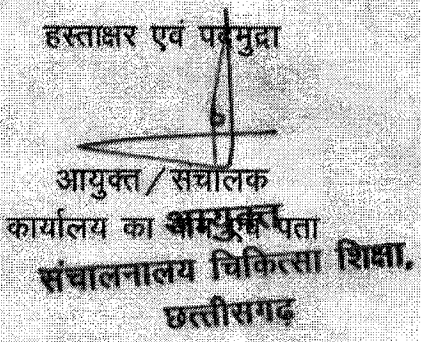 हस्ताक्षर एवं पदमुद्रा
आयुक्त/संचालक
कार्यालय का नाम एवं पता
आयुक्त
संचालनालय चिकित्सा शिक्षा,
छत्तीसगढ़